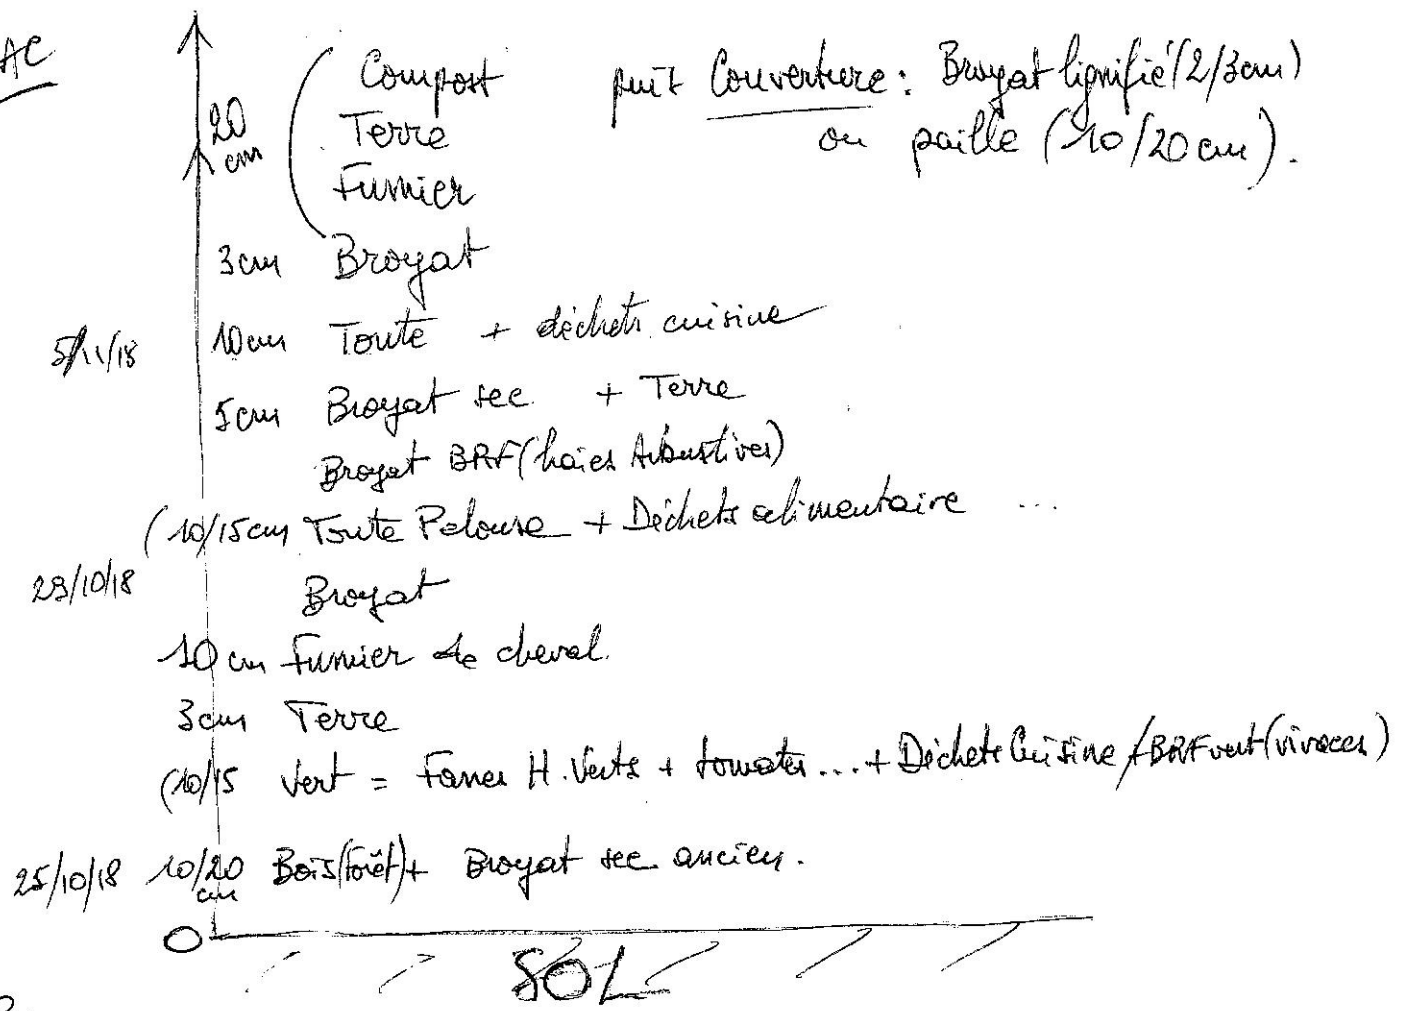 AC
Compost puis Couverture : Broyat lignifié (2/3cm)
20 cm Terre ou paille (10/20 cm).
Fumier
3cm Broyat
5/11/18 10cm Tonte + déchets cuisine
5cm Broyat sec + Terre
Broyat BRF (haies Arbustives)
(10/15cm Tonte Pelouse + Déchets alimentaire ...
29/10/18 Broyat
10 cm Fumier de cheval.
3cm Terre
(10/15 Vert = Fanes H. Verts + tomates ... + Déchets Cuisine / BRF vert (vivaces)
25/10/18 10/20 cm Bois (forêt) + Broyat sec ancien.
0
SOL